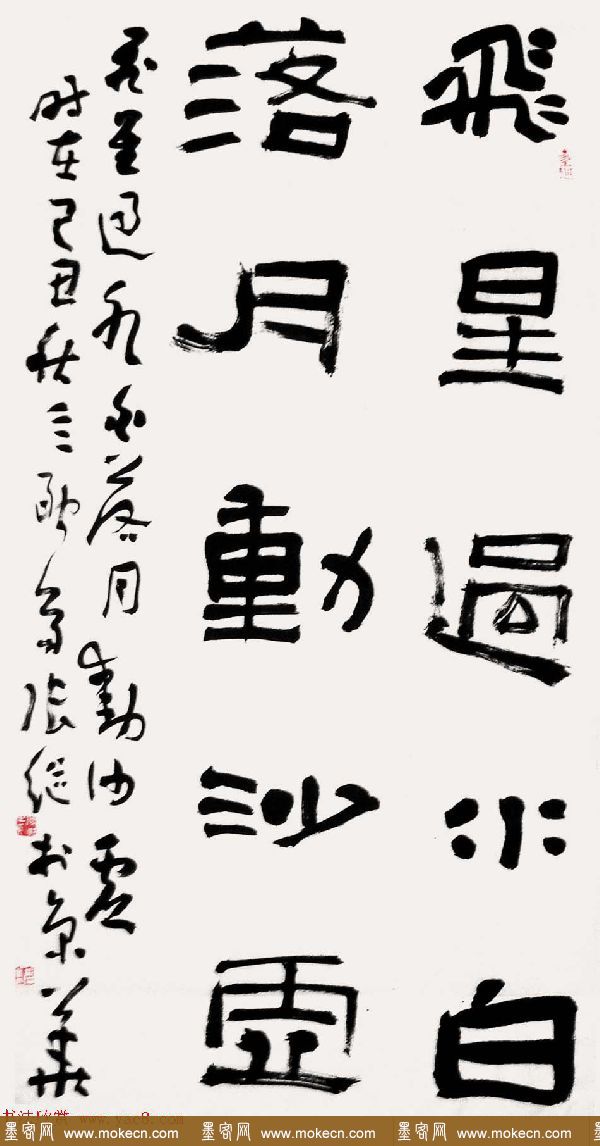 飛星過水白
落月動沙虛
飛星過水白落月動沙虛
時在己丑秋三耻齋張繼於京華
www.yac8.com
墨客网 www.mokecn.com 墨客网 www.mokecn.com 墨客网 www.mokecn.com